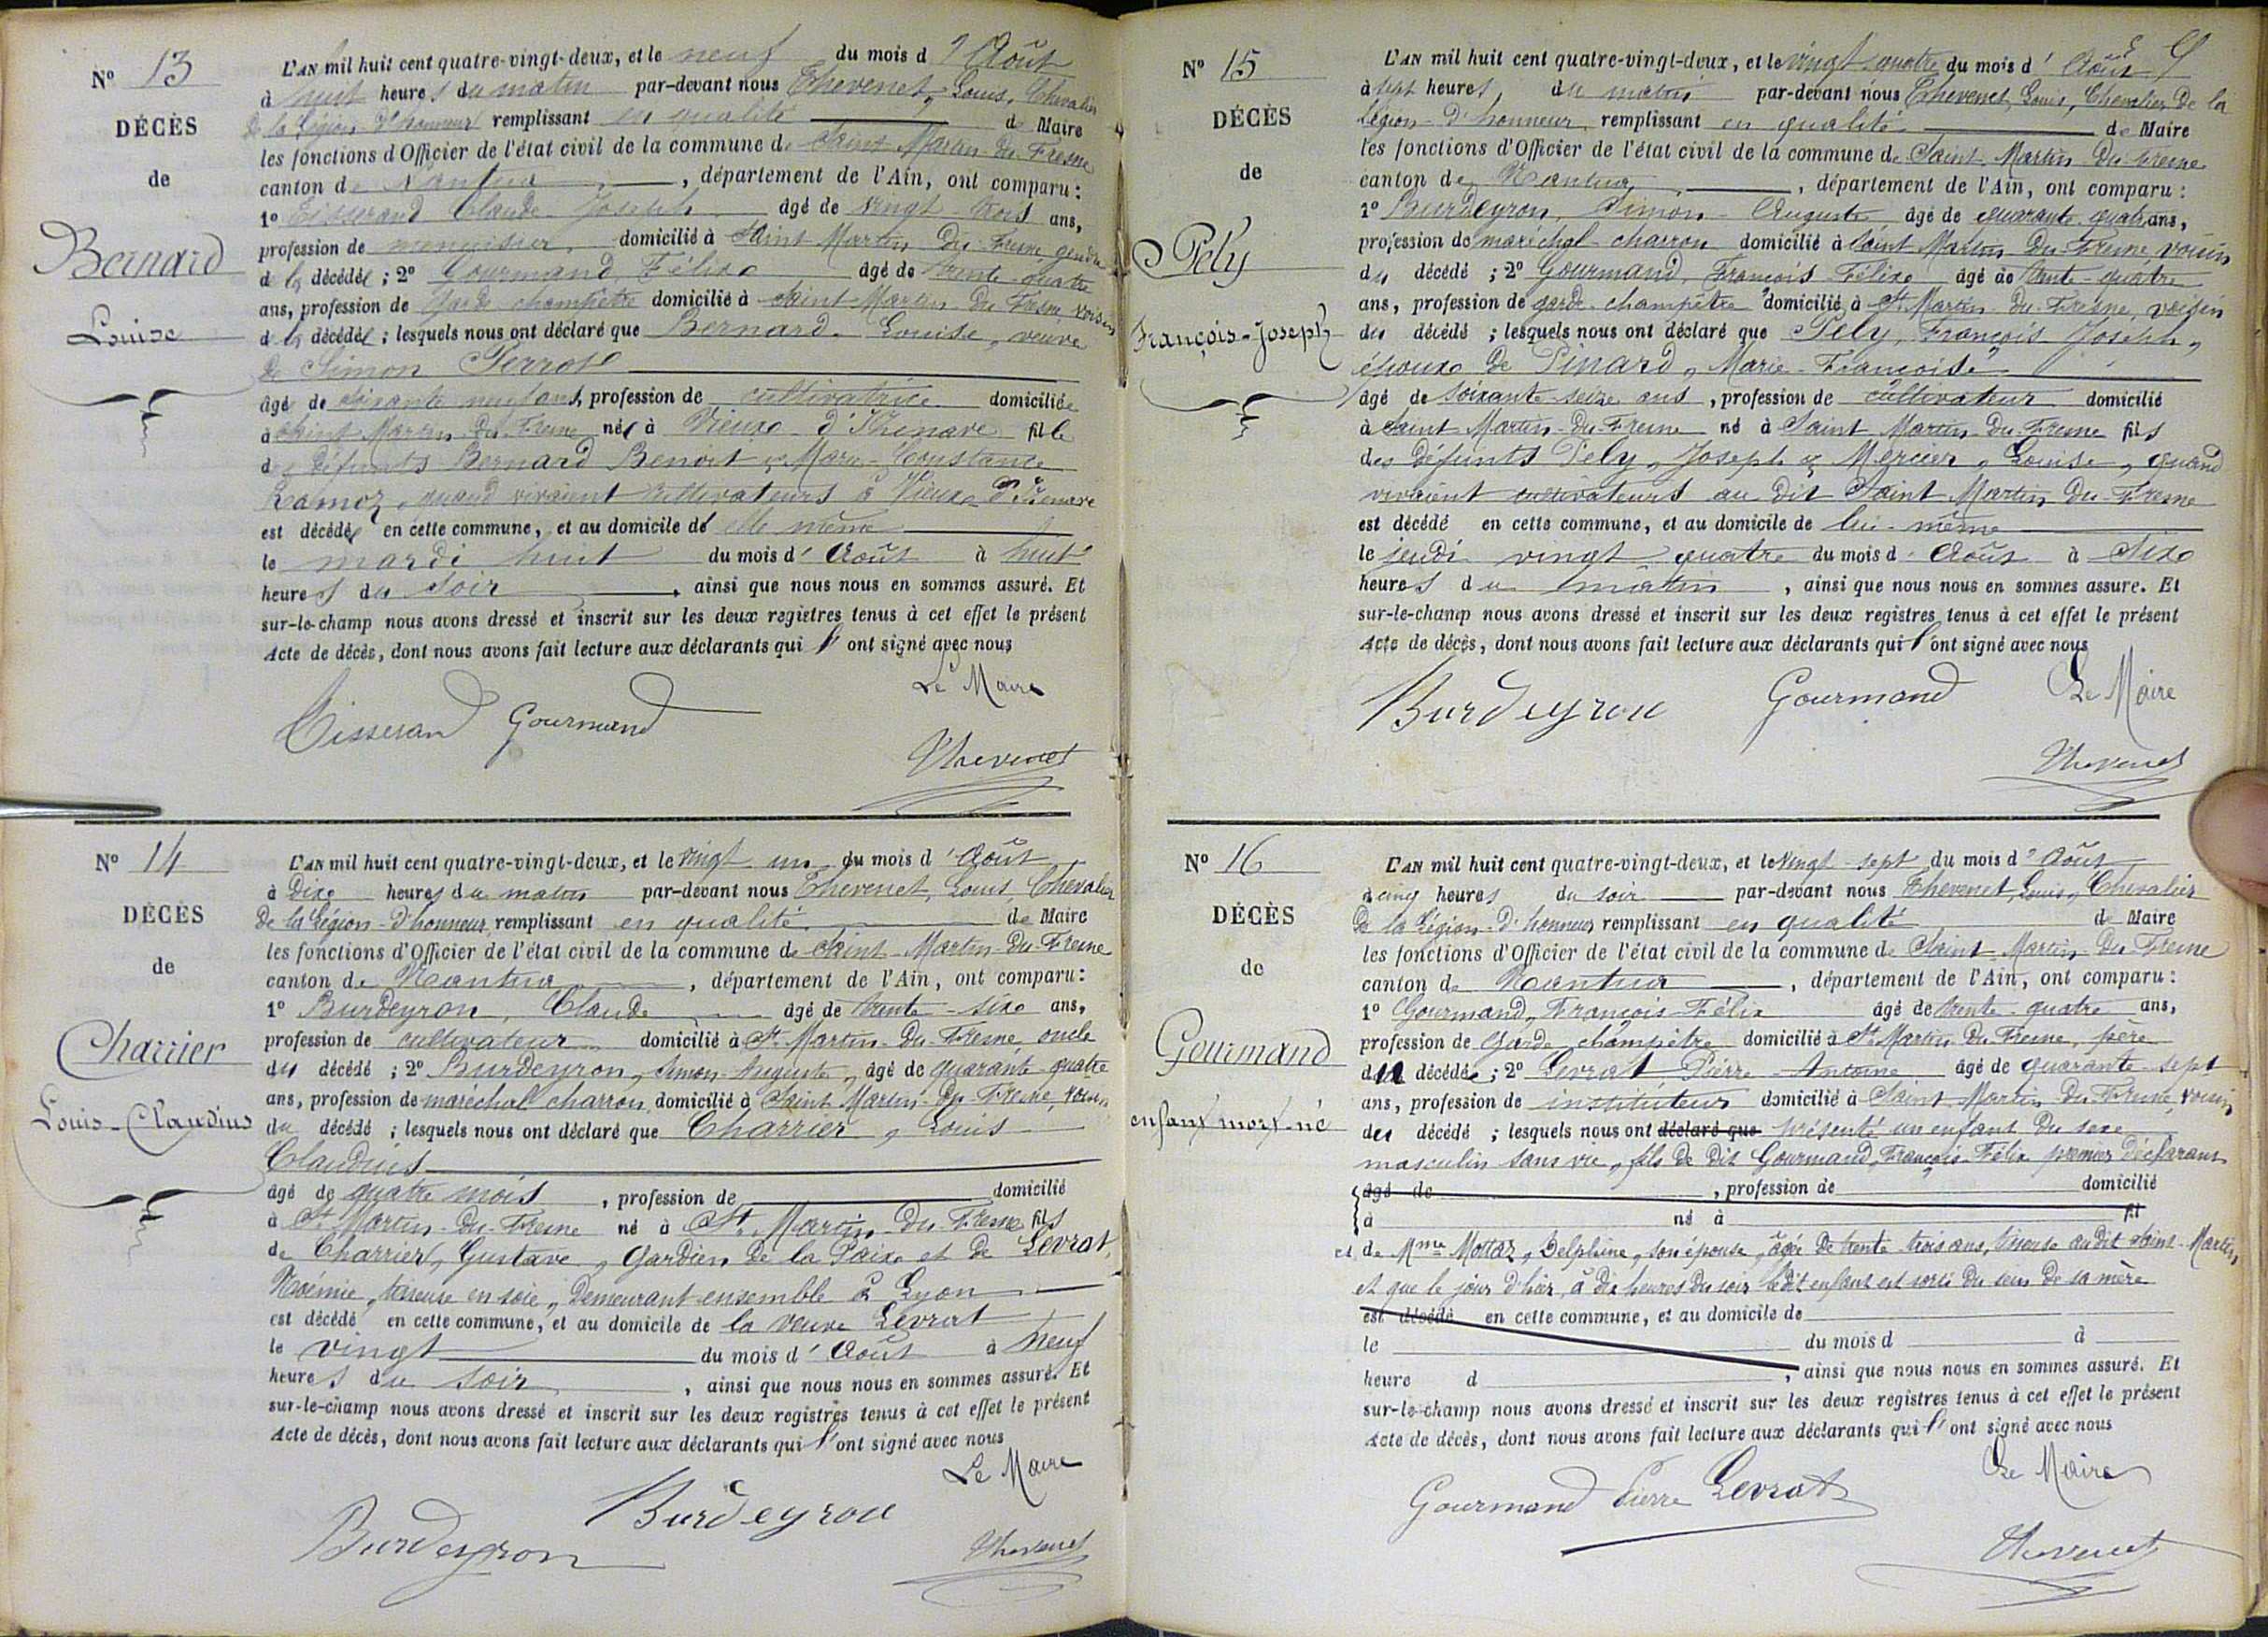 N° 13
DÉCÈS
de
Bernard
Louise
L'AN mil huit cent quatre-vingt-deux, et le neuf du mois d'Août
à huit heures du matin par-devant nous Thevenet, Louis, Chevalier
de la Légion d'honneur remplissant en qualité de Maire
les fonctions d'Officier de l'état civil de la commune de Saint Martin du Fresne
canton de Nantua, département de l'Ain, ont comparu :
1° Tisserand Claude Joseph âgé de vingt trois ans,
profession de menuisier, domicilié à Saint Martin du Fresne, gendre
de la décédée ; 2° Gourmand Félix âgé de trente quatre
ans, profession de Garde champêtre domicilié à Saint Martin du Fresne, voisin
de la décédée ; lesquels nous ont déclaré que Bernard Louise, veuve
de Simon
âgé de soixante neuf ans, profession de cultivatrice domiciliée
à Saint Martin du Fresne née à Vieux d'Izenave fille
des défunts Bernard Benoit & Marie Constance
Ramoz, quand vivaient cultivateurs à Vieux d'Izenave
est décédée en cette commune, et au domicile de elle même
le mardi huit du mois d'Août à huit
heures du soir, ainsi que nous nous en sommes assuré. Et
sur-le-champ nous avons dressé et inscrit sur les deux registres tenus à cet effet le présent
Acte de décès, dont nous avons fait lecture aux déclarants qui l'ont signé avec nous
Le Maire
Tisseran Gourmand
Thevenet
N° 14
DÉCÈS
de
Charrier
Louis-Claudius
L'AN mil huit cent quatre-vingt-deux, et le vingt un du mois d'Août
à Dix heures du matin par-devant nous Thevenet, Louis, Chevalier
De la Légion-D'honneur, remplissant en qualité de Maire
les fonctions d'Officier de l'état civil de la commune de Saint-Martin-du-Fresne
canton de Nantua, département de l'Ain, ont comparu :
1° Burdeyron, Claude âgé de trente-six ans,
profession de cultivateur domicilié à St Martin-du-Fresne, oncle
du décédé ; 2° Burdeyron, Simon Auguste, âgé de quarante-quatre
ans, profession de maréchal charron, domicilié à Saint Martin-du-Fresne, voisin
du décédé ; lesquels nous ont déclaré que Charrier, Louis
Claudius
âgé de quatre mois, profession de domicilié
à St Martin-du-Fresne né à St Martin-du-Fresne fils
de Charrier, Gustave, Gardien de la Paix et de Levrat,
Noémie, tisseuse en soie, demeurant ensemble à Lyon
est décédé en cette commune, et au domicile de la veuve Levrat
le vingt du mois d'Août à Neuf
heures du soir, ainsi que nous nous en sommes assuré. Et
sur-le-champ nous avons dressé et inscrit sur les deux registres tenus à cet effet le présent
Acte de décès, dont nous avons fait lecture aux déclarants qui l'ont signé avec nous
Le Maire
Burdeyron Burdeyron
Thevenet
N° 15
DÉCÈS
de
Pely
François-Joseph
L'AN mil huit cent quatre-vingt-deux, et le vingt quatre du mois d'Août
à sept heures, du matin par-devant nous Thevenet, Louis, Chevalier De la
Légion-D'honneur, remplissant en qualité de Maire
les fonctions d'Officier de l'état civil de la commune de Saint Martin du Fresne
canton de Nantua, département de l'Ain, ont comparu :
1° Burdeyron, Simon-Auguste âgé de quarante quatre ans,
profession de maréchal-charron domicilié à Saint-Martin-du-Fresne, voisin
du décédé ; 2° Gourmand, François Félix âgé de trente-quatre
ans, profession de garde-champêtre domicilié à St Martin-du-Fresne, voisin
du décédé ; lesquels nous ont déclaré que Pely, François Joseph,
époux de Pinard, Marie-Françoise
âgé de soixante-seize ans, profession de cultivateur domicilié
à Saint-Martin-du-Fresne né à Saint Martin-du-Fresne fils
des défunts Pely, Joseph & Mercier, Louise, quand
vivaient cultivateurs au dit Saint Martin du Fresne
est décédé en cette commune, et au domicile de lui-même
le jeudi vingt quatre du mois d'Août à Six
heures du matin, ainsi que nous nous en sommes assuré. Et
sur-le-champ nous avons dressé et inscrit sur les deux registres tenus à cet effet le présent
Acte de décès, dont nous avons fait lecture aux déclarants qui l'ont signé avec nous
Burdeyron Gourmand Le Maire
Thevenet
N° 16
DÉCÈS
de
Gourmand
enfant mort-né
L'AN mil huit cent quatre-vingt-deux, et le vingt-sept du mois d'Août
à cinq heures du soir par-devant nous Thevenet, Louis, Chevalier
De la Légion-D'honneur remplissant en qualité de Maire
les fonctions d'Officier de l'état civil de la commune de Saint Martin du Fresne
canton de Nantua, département de l'Ain, ont comparu :
1° Gourmand, François-Félix âgé de trente-quatre ans,
profession de Garde champêtre domicilié à St Martin du Fresne, père
du décédé ; 2° Levrat Pierre-Antoine âgé de quarante-sept
ans, profession de instituteur domicilié à Saint Martin du Fresne, voisin
du décédé ; lesquels nous ont déclaré que présenté un enfant du sexe
masculin sans vie, fils de dit Gourmand, François-Félix premier déclarant
âgé de, profession de domicilié
à né à fil
et de Mme Mottaz, Delphine, son épouse, âgée de trente trois ans, tisseuse au dit Saint-Martin,
et que le jour d'hier, à dix heures du soir le dit enfant est sorti du sein de sa mère
est décédé en cette commune, et au domicile de
le du mois d à
heure d, ainsi que nous nous en sommes assuré. Et
sur-le-champ nous avons dressé et inscrit sur les deux registres tenus à cet effet le présent
Acte de décès, dont nous avons fait lecture aux déclarants qui l'ont signé avec nous
Le Maire
Gourmand Pierre Levrat
Thevenet